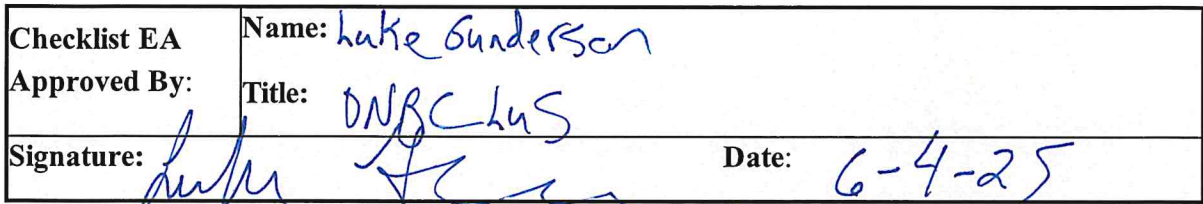 Checklist EA
Approved By:
Name: Luke Gunderson
Title: DNRC LUS
Signature: Luke
Date: 6-4-25